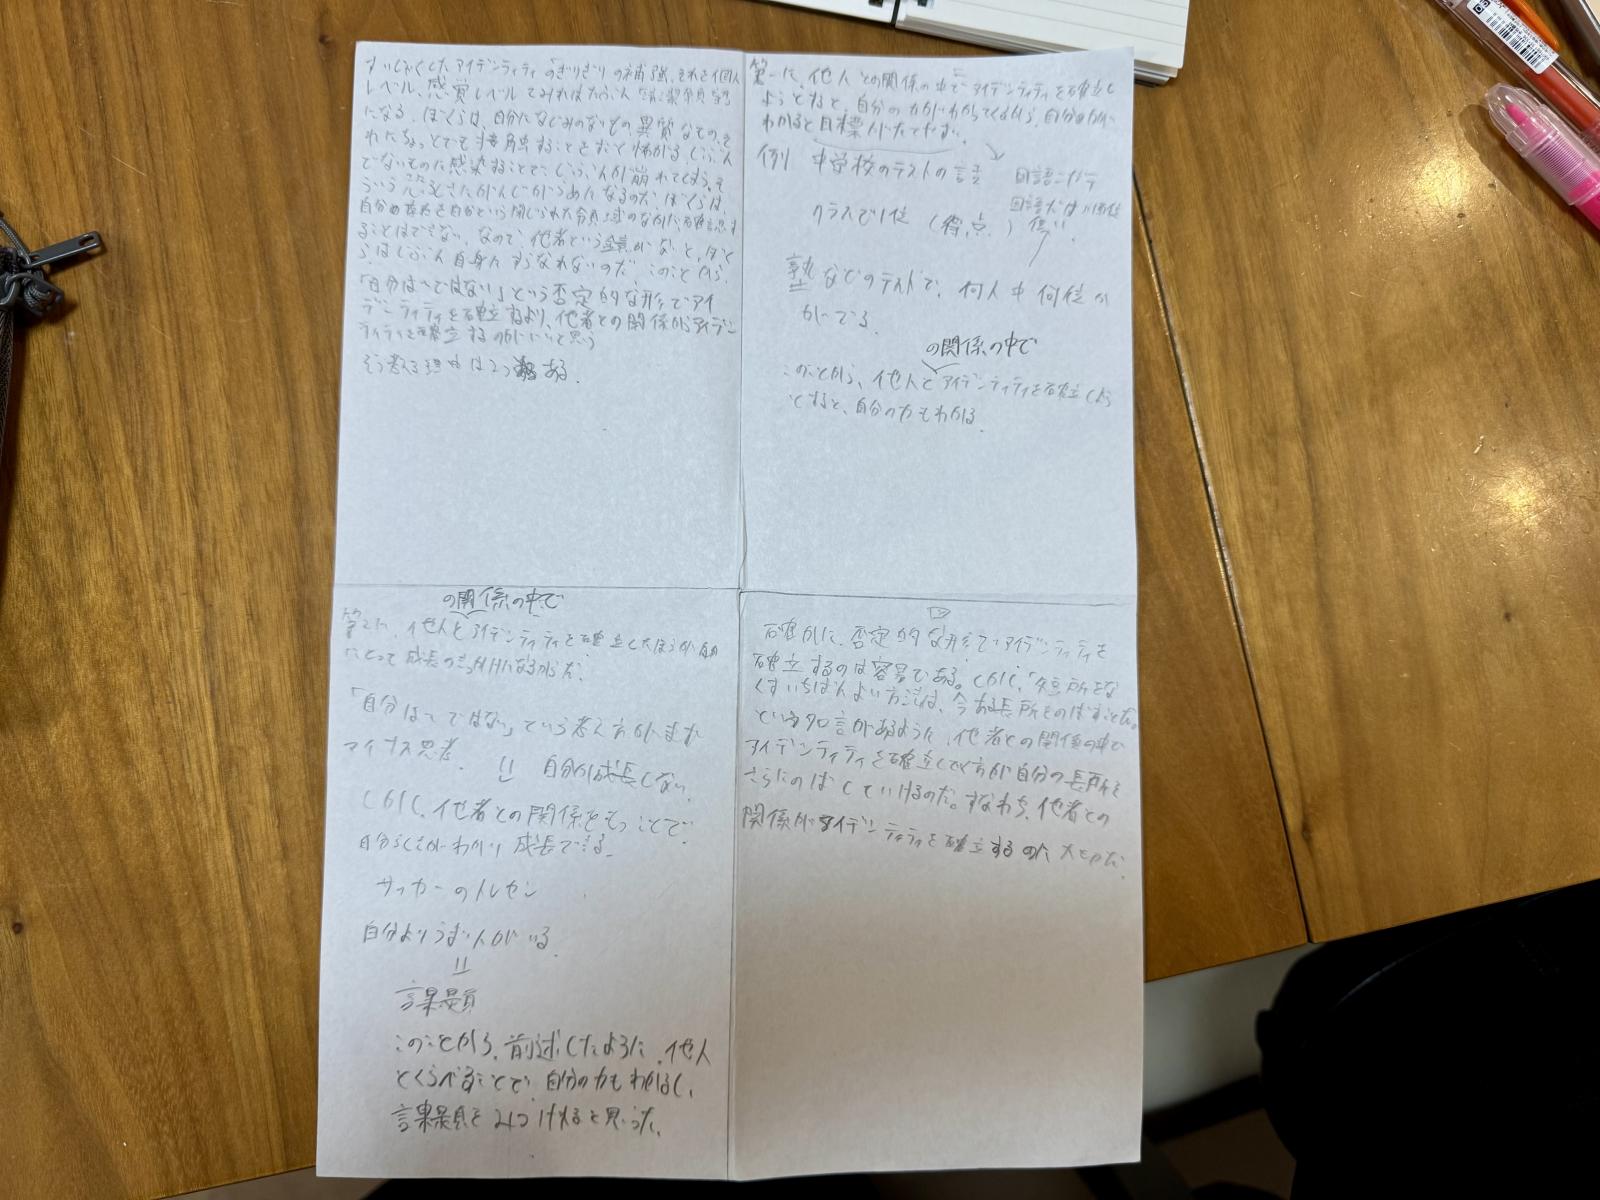 すいじゃくしたアイデンティティのぎりぎりの補強、それを個人
レベル、感覚レベルでみればたぶん
になる。ぼくらは、自分になじみのないもの異質なもの、そ
れにちょっとでも接触することをすごく怖がる。じぶん
でないものに感染することで、じぶんが崩れてしまう、そ
ういう恐ろしさにがんじがらめになるのだ。ぼくらは、
自分の存在を自分という閉じられた領域のなかに確認す
ることはできない。なので、他者という鏡がないと、ぼく
らはじぶん自身にすらなれないのだ。このことから、
「自分は〜ではない」という否定的な形でアイ
デンティティを確立するより、他者との関係がアイデン
ティティを確立するのがいいと思う
そう考える理由は2つある。
第一に、他人との関係の中でアイデンティティを確立し
ようとすると、自分の力がわかってくるから。自分の力が
わかると目標がたてやすい。
例 中学校のテストの話 国語ニガテ
国語だけ 位
クラスで1位 (得点) 低い
塾などのテストで、何人中何位か
がでる。
の関係の中で
このことから、他人とアイデンティティを確立しよう
とすると、自分の力もわかる。
の関係の中で
第2に、他人とアイデンティティを確立したほうが自分
にとって成長のきっかけになるからだ。
「自分は〜ではない」という考え方がまず
マイナス思考。 = 自分が成長しない。
しかし、他者との関係をもつことで、
自分らしさがわかり成長できる。
サッカーのトレセン
自分よりうまい人がいる。
=
課題
このことから、前述したように、他人
とくらべることで、自分の力もわかるし、
課題をみつけれると思った。
確かに、否定的な形でアイデンティティを
確立するのは容易である。しかし、「短所をな
くすいちばんよい方法は、今ある長所をのばすことだ。」
という名言があるように、他者との関係の中で
アイデンティティを確立してく方が自分の長所を
さらにのばしていけるのだ。すなわち、他者との
関係がアイデンティティを確立するのに大切だ。